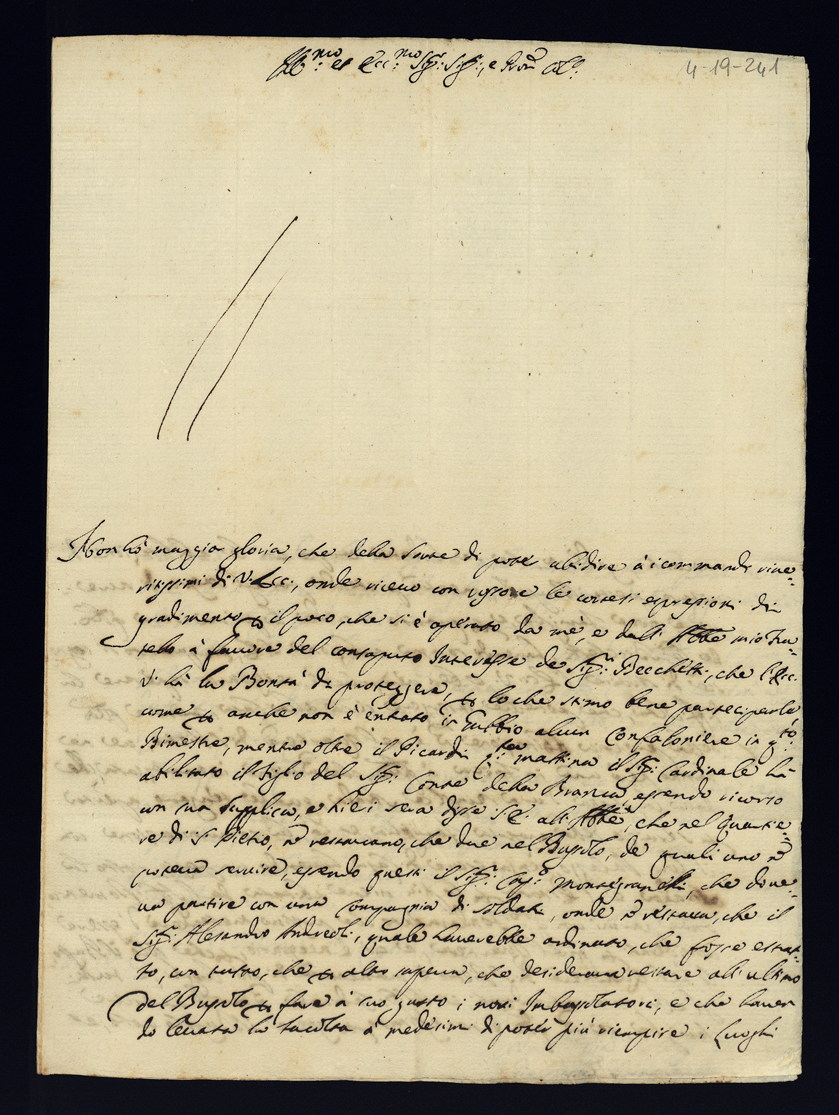 Ill.mo et Ecc.mo Sig.r Sig.r, e Pron Col.mo
4-19-241
Non hò maggia gloria, che della sorte di poter ubidire à i commandi rive-
ritissimi di V. Ecc., onde ricevo con rossore le cortesi espressioni di
gradimento p il poco, che si è operato da mè, e dall Abbe mio fra-
tello à favore del consaputo Interesse de Sig.ri Becchetti, che l'Ecc.
V. hà la Bontà di proteggere, p lo che stimo bene parteciparle
come p anche non è entrato in Gubbio alcun Confaloniere in q.to
Bimestre, mentre oltre il Picardi q.ta mattina il Sig. Cardinale hà
abilitato il figlio del Sig. Conte della Branca, essendo ricorso
con sua supplica, e hieri sera disse S.E. all Abbe, che nel Quartie-
re di S. Pietro, nò restavano, che due nel Bussolo, de quali uno nò
poteva servire, essendo questi il Sig. Montegranelli, che dove-
va partire con una Compagnia di soldati, onde nò restava, che il
Sig. Alesandro Andreoli, quale haverebbe ordinato, che fosse estrat-
to, con tutto, che p altro sapeva, che desiderava restare all ultimo
del Bussolo p fare à suo gusto i novi Imbussolatori, e che haven
do levata la facoltà a medesimi di poter più riempire i Luoghi